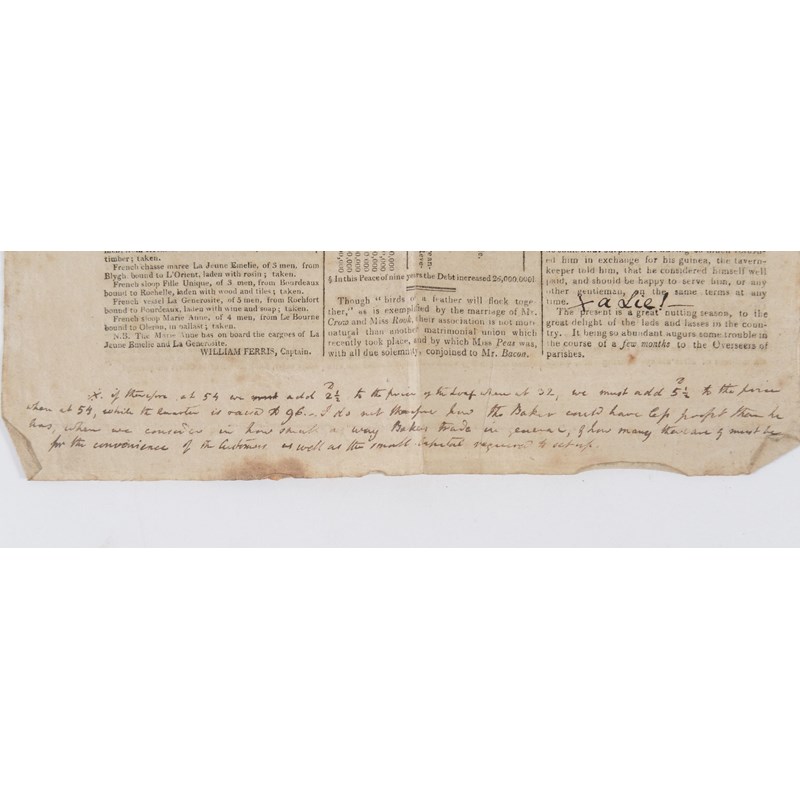 timber; taken.
French chasse maree La Jeune Emelie, of 5 men, from
Blygh bound to L'Orient, laden with rosin; taken.
French sloop Fille Unique, of 3 men, from Bourdeaux
bound to Rochelle, laden with wood and tiles; taken.
French vessel La Generosite, of 5 men, from Rochfort
bound to Bourdeaux, laden with wine and soap; taken.
French sloop Marie Anne, of 4 men, from Le Bourne
bound to Oleron, in ballast; taken.
N.B. The Marie Anne has on board the cargoes of La
Jeune Emelie and La Generosite.
WILLIAM FERRIS, Captain.
§ In this Peace of nine years the Debt increased 26,000,000l.
Though "birds of a feather will flock toge-
ther," as is exemplified by the marriage of Mr.
Crow and Miss Rook, their association is not more
natural than another matrimonial union which
recently took place, and by which Miss Peas was,
with all due solemnity, conjoined to Mr. Bacon.
ed him in exchange for his guinea, the tavern-
keeper told him, that he considered himself well
paid, and should be happy to serve him, or any
other gentleman, on the same terms at any
time. X a Lie!
The present is a great nutting season, to the
great delight of the lads and lasses in the coun-
try. It being so abundant augurs some trouble in
the course of a few months to the Overseers of
parishes.
X. if therefore at 54 we must add 2½ to the price of the Loaf when at 32, we must add 5½ to the price
when at 54, while the quarter is raised to 96. I do not therefore how the Baker could have less profit than he
has, when we consider in how small a way Bakers trade in general, & how many there are & must be
for the convenience of the Customers as well as the small Capital required to set up.